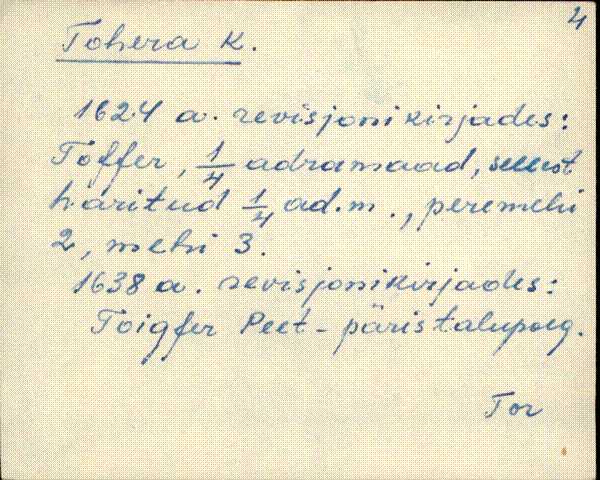 4
Tohera K.
1624 a. revisjonikirjades:
Töffer, 1/4 adramaad, sellest
häritud 1/4 ad.m., peremehi
2, mehi 3.
1638 a. revisjonikirjades:
Toigfer Peet - päristalupoeg.
Tor